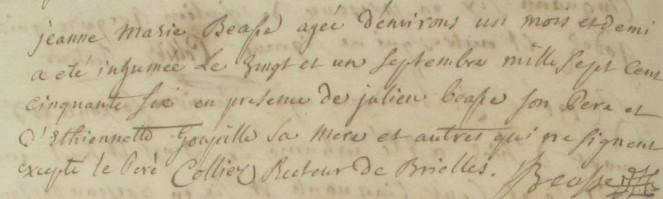 jeanne Marie Beasse agée d'environs un mois et demi
a eté inhumée Le vingt et un septembre mille sept cent
cinquante six en presence de julien beasse son pere et
d'Ethiennette Goupille sa mere et autres qui ne signent
excepté le peré Collier Recteur de Brielles.
Beasse